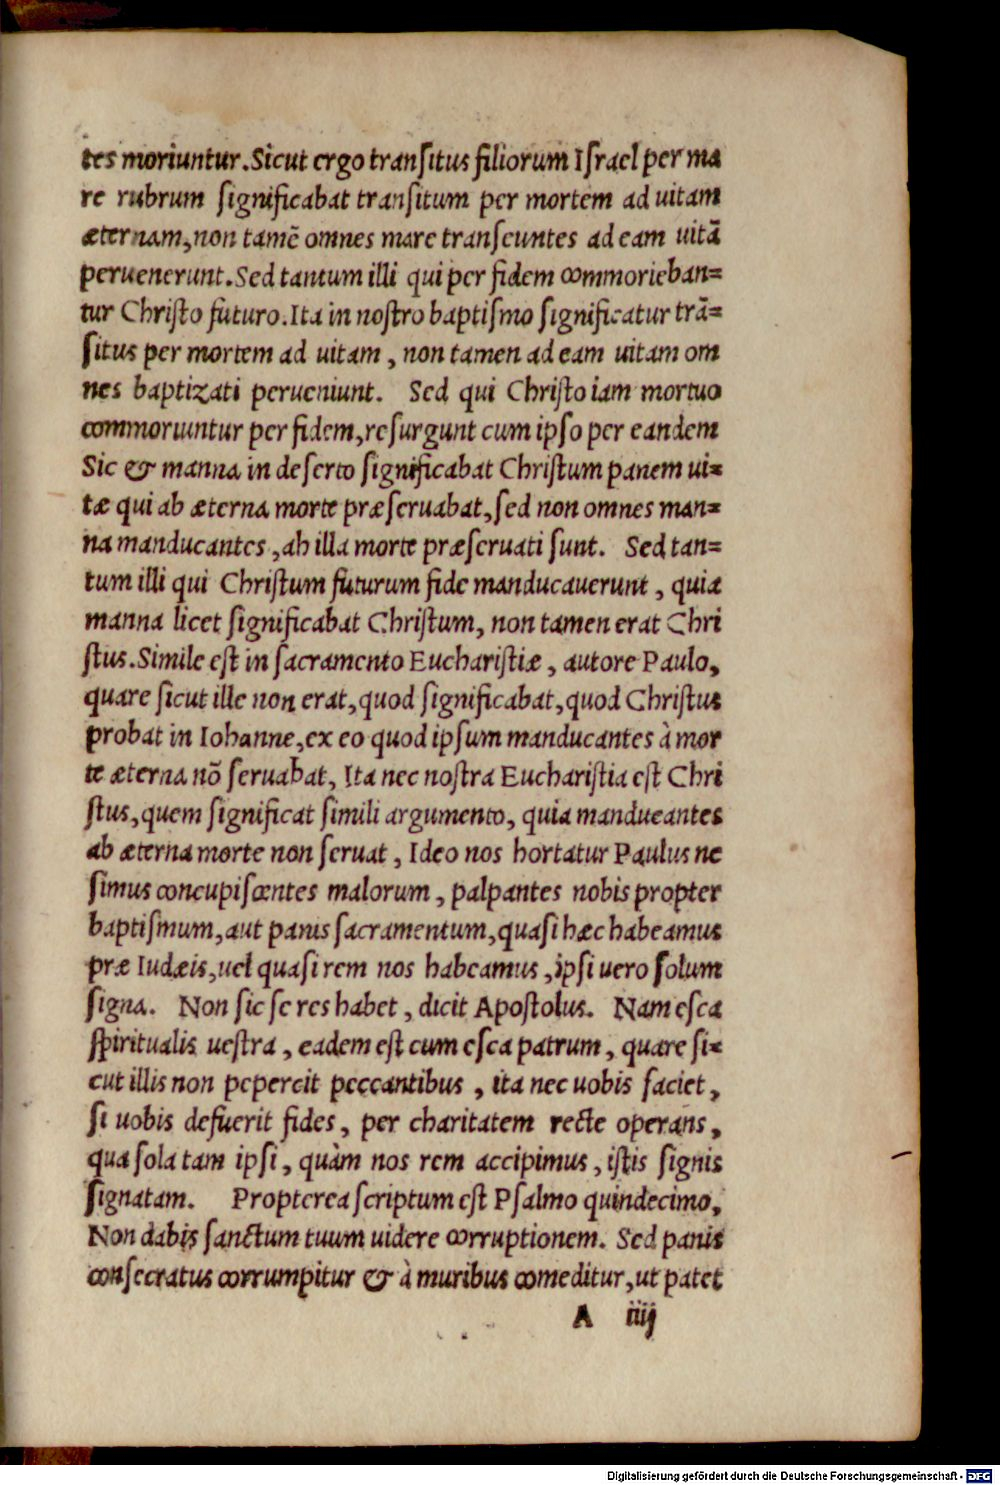 tes moriuntur. Sicut ergo tranſitus filiorum Iſrael per ma
re rubrum ſignificabat tranſitum per mortem ad uitam
æternam, non tamē omnes mare tranſeuntes ad eam uitā
peruenerunt. Sed tantum illi qui per fidem commorieban=
tur Chriſto futuro. Ita in noſtro baptiſmo ſignificatur trā=
ſitus per mortem ad uitam, non tamen ad eam uitam om
nes baptizati perueniunt. Sed qui Chriſto iam mortuo
commoriuntur per fidem, reſurgunt cum ipſo per eandem
Sic & manna in deſerto ſignificabat Chriſtum panem ui=
tæ qui ab æterna morte præſeruabat, ſed non omnes man=
na manducantes, ab illa morte præſeruati ſunt. Sed tan=
tum illi qui Chriſtum futurum fide manducauerunt, quia
manna licet ſignificabat Chriſtum, non tamen erat Chri
ſtus. Simile eſt in ſacramento Euchariſtiæ, autore Paulo,
quare ſicut ille non erat, quod ſignificabat, quod Chriſtus
probat in Iohanne, ex eo quod ipſum manducantes à mor
te æterna nō ſeruabat, Ita nec noſtra Euchariſtia eſt Chri
ſtus, quem ſignificat ſimili argumento, quia mandueantes
ab æterna morte non ſeruat, Ideo nos hortatur Paulus ne
ſimus concupiſcentes malorum, palpantes nobis propter
baptiſmum, aut panis ſacramentum, quaſi hæc habeamus
præ Iudæis, uel quaſi rem nos habeamus, ipſi uero ſolum
ſigna. Non ſic ſe res habet, dicit Apoſtolus. Nam eſca
ſpiritualis ueſtra, eadem eſt cum eſca patrum, quare ſi=
cut illis non pepercit peccantibus, ita nec uobis faciet,
ſi uobis defuerit fides, per charitatem recte operans,
qua ſola tam ipſi, quàm nos rem accipimus, iſtis ſignis
ſignatam. Propterea ſcriptum eſt Pſalmo quindecimo,
Non dabis ſanctum tuum uidere corruptionem. Sed panis
conſecratus corrumpitur & à muribus comeditur, ut patet
A iiij
Digitalisierung gefördert durch die Deutsche Forschungsgemeinschaft - DFG